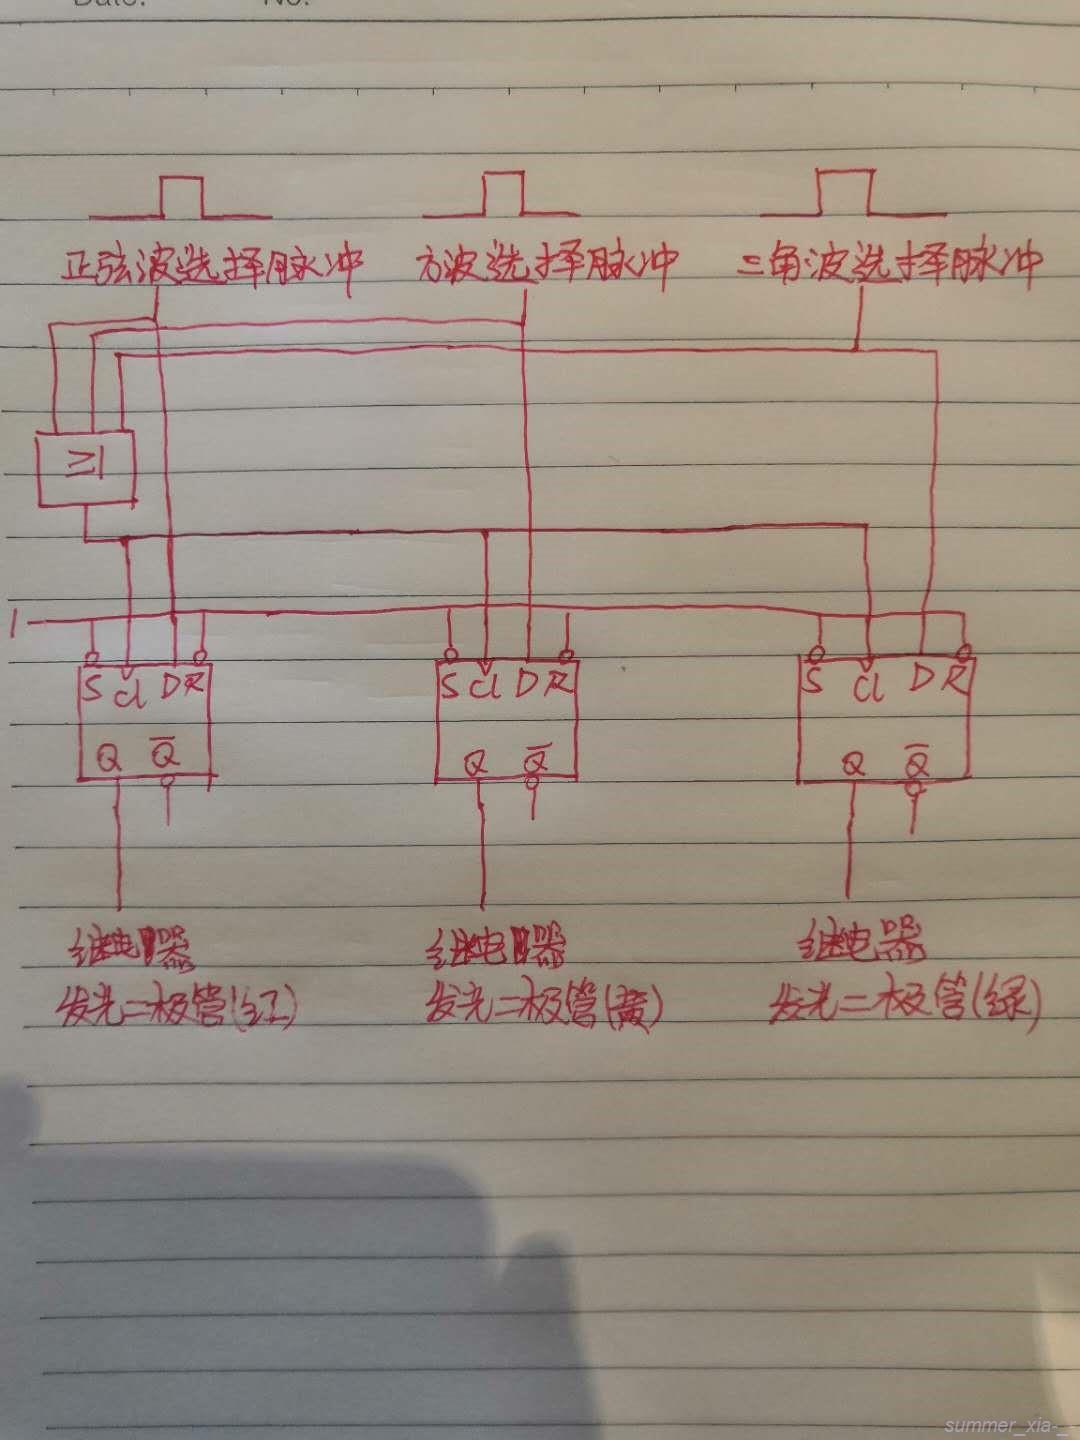 Date: No.
正弦波选择脉冲 方波选择脉冲 三角波选择脉冲
≥1
1
S Cl D R S Cl D R S Cl D R
Q Q̅ Q Q̅ Q Q̅
继电器 继电器 继电器
发光二极管(红) 发光二极管(黄) 发光二极管(绿)
summer_xia-_